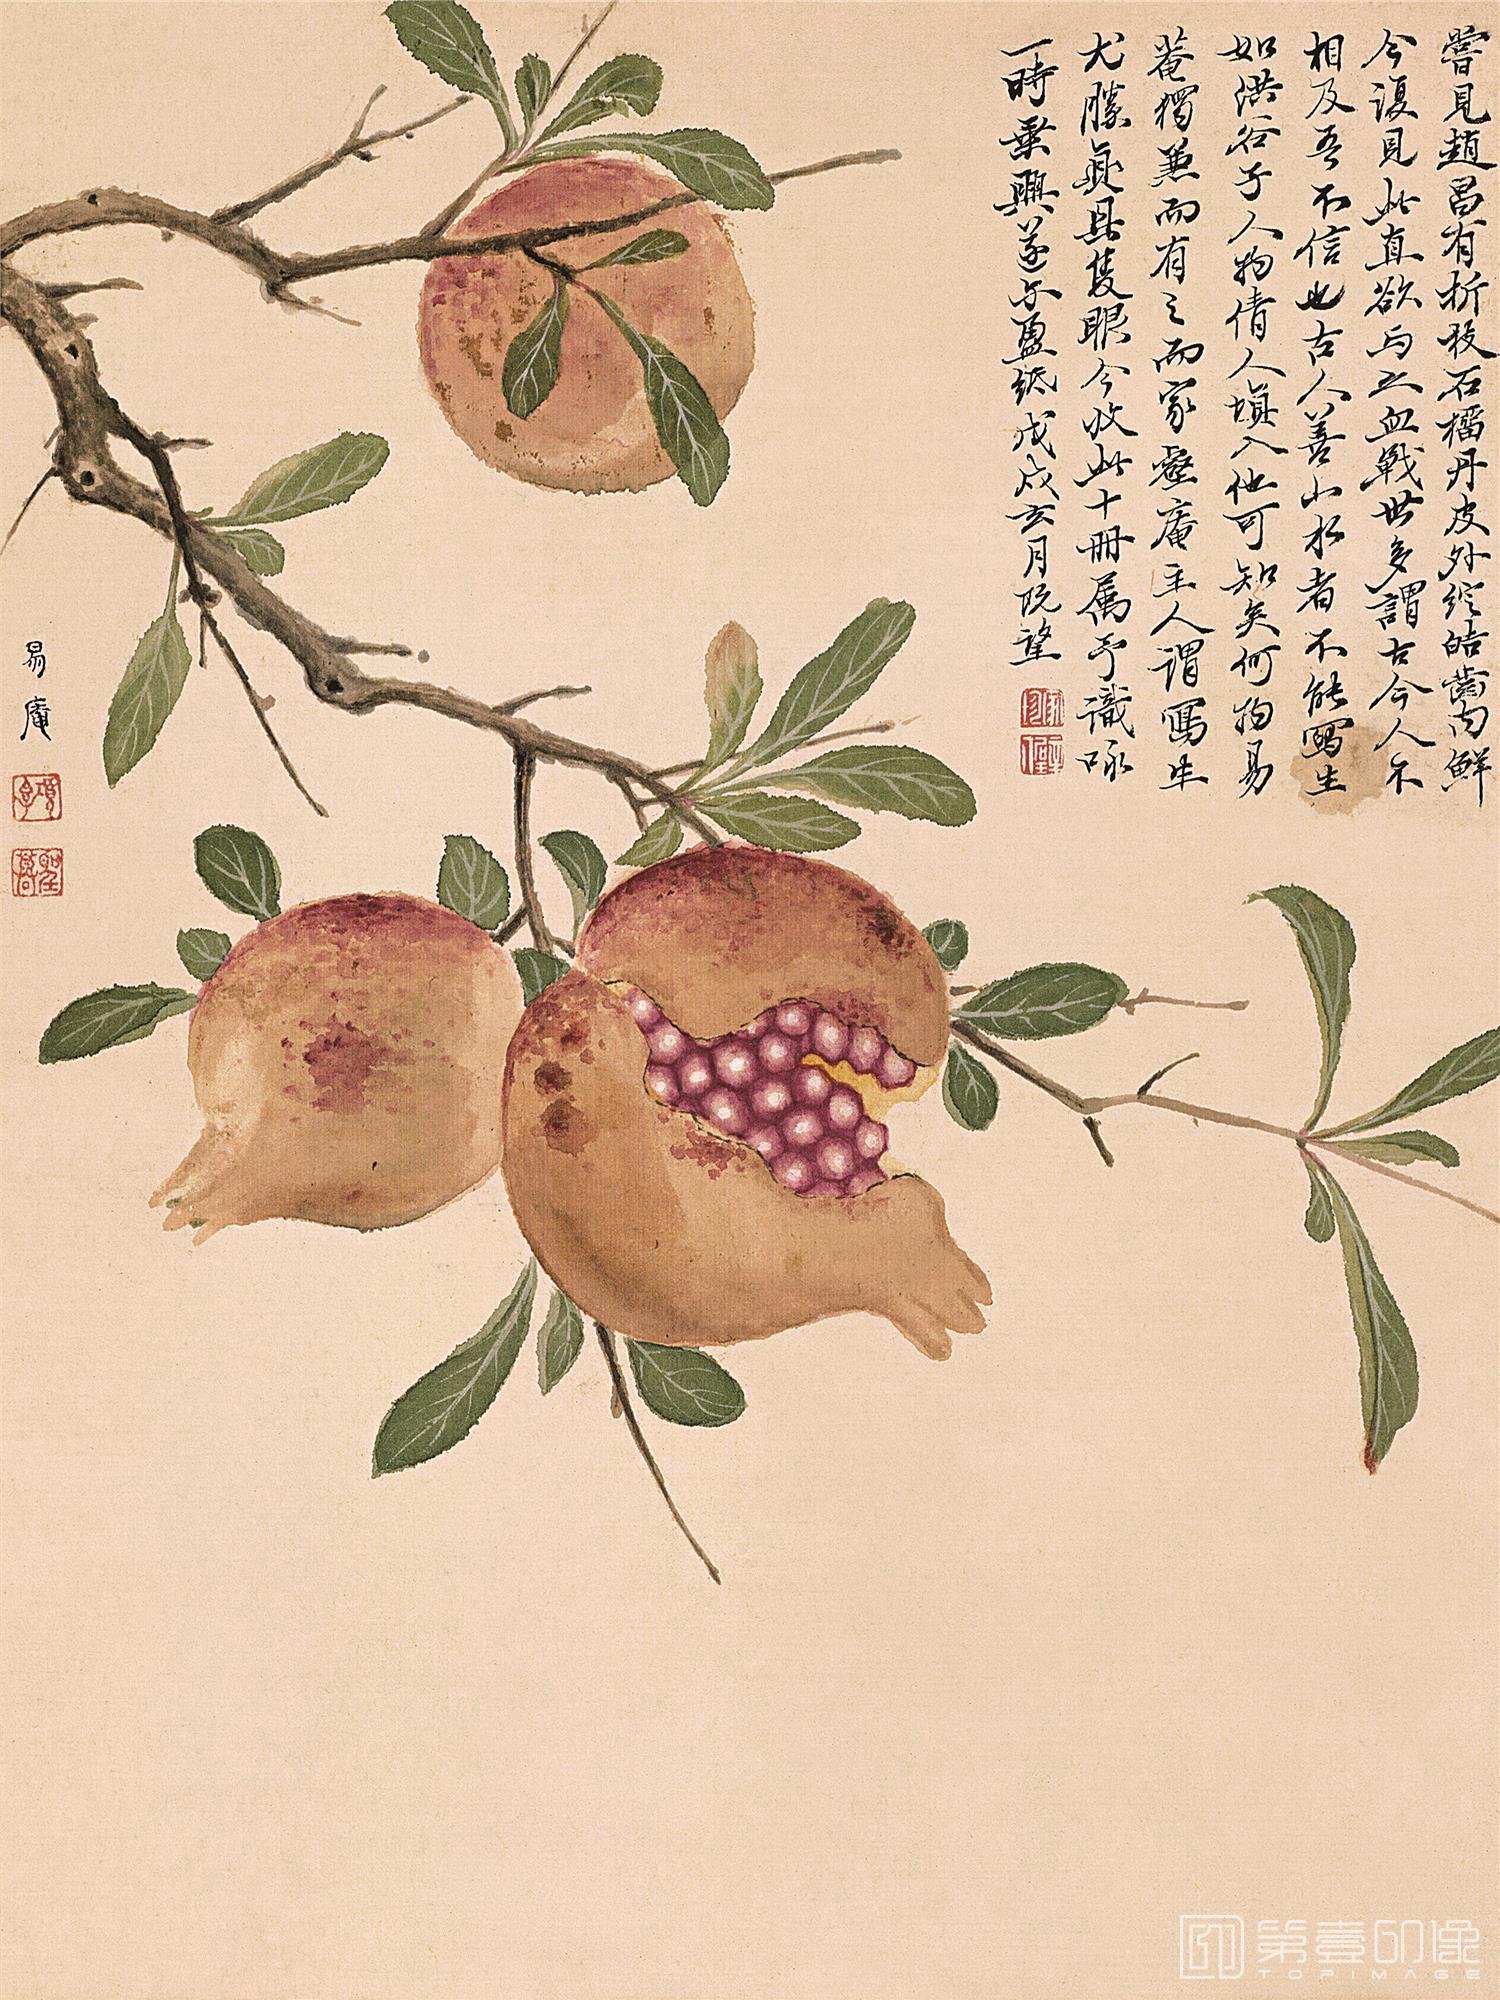 嘗見趙昌有折枝石榴丹皮外綻皓齒內鮮
今復見此直欲与之血戰世多謂古今人不
相及吾不信也古人善山水者不能寫生
如洪谷子人物倩人填入他可知矣何物易
菴獨兼而有之而家壑庵主人謂寫生
尤勝真具隻眼今收此十冊属予識咏
一時乗興遂尔盈紙戊戌玄月阮望
易庵
第壹印像
TOPIMAGE